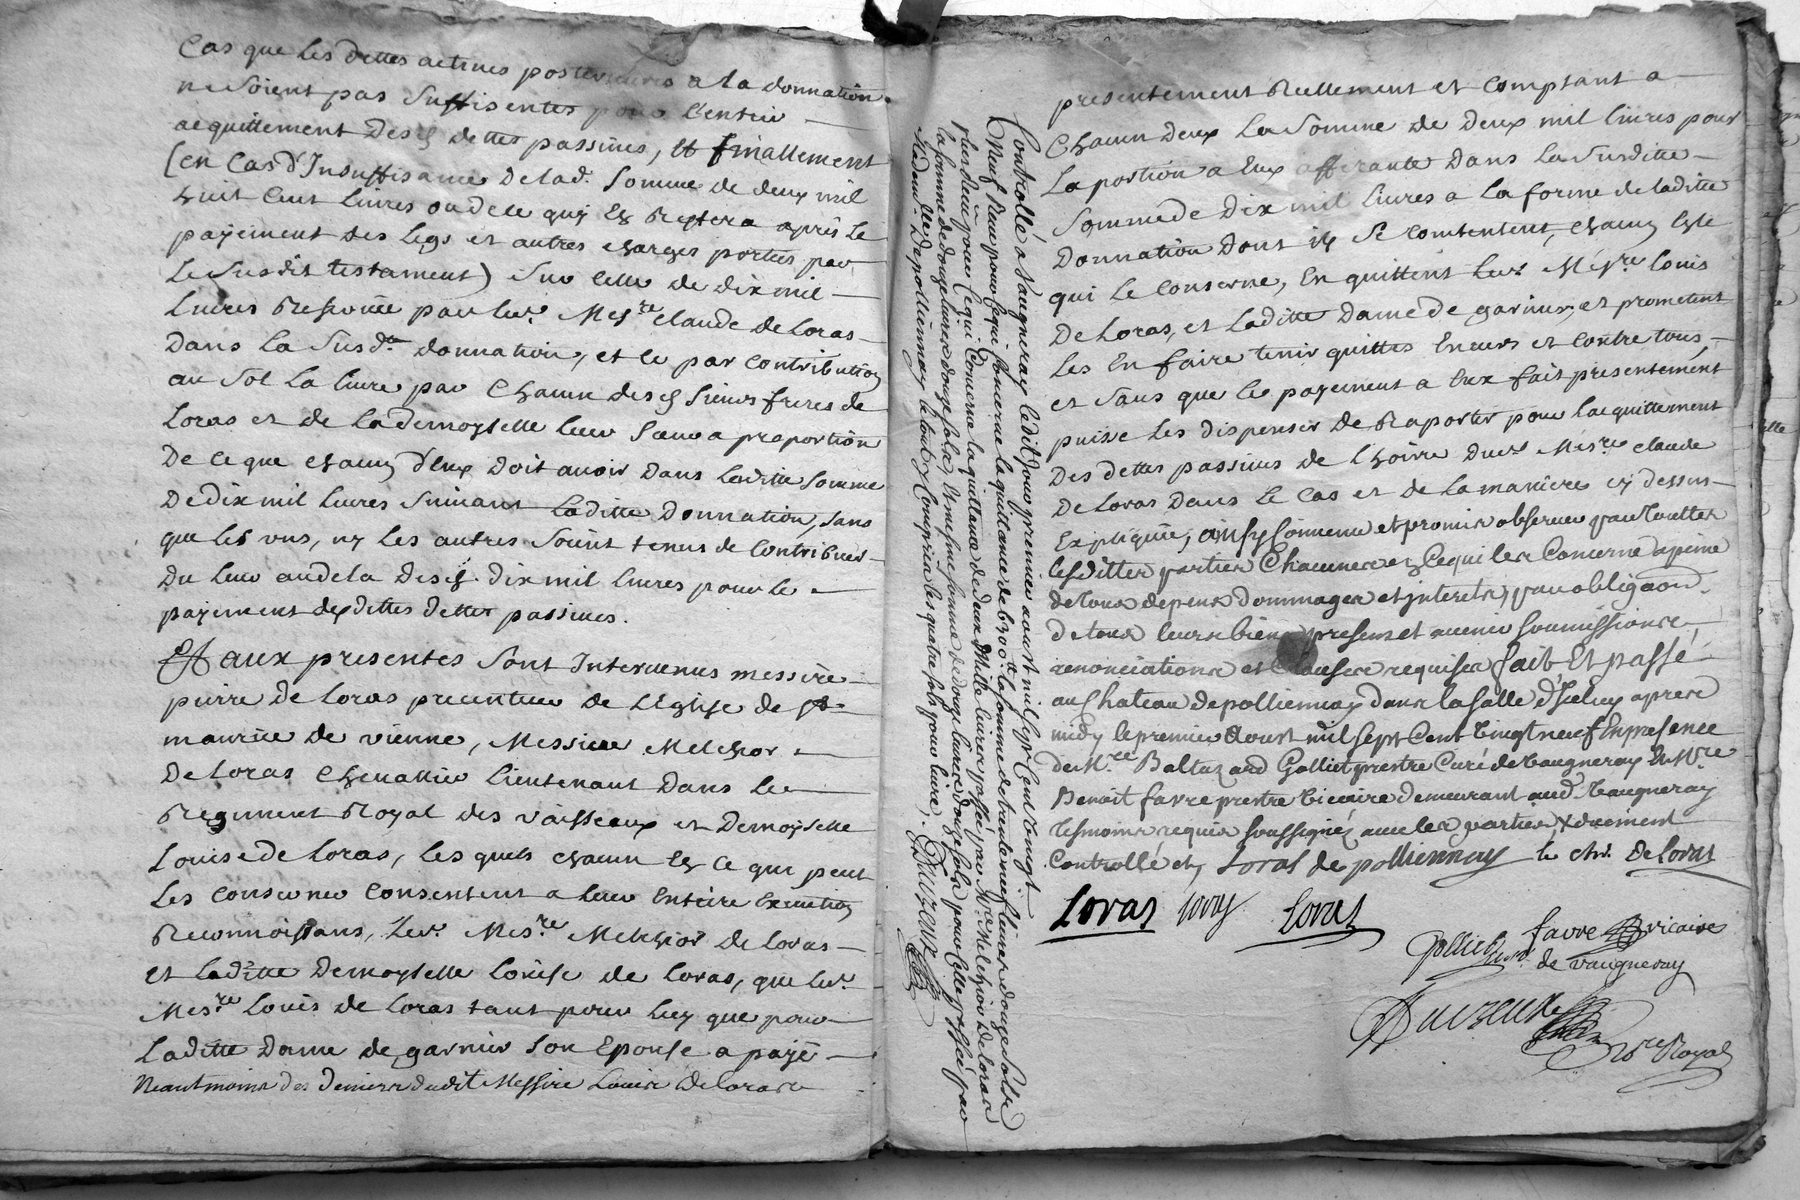 Cas que les dettes actives posterieures a la donnation
ne soient pas suffisentes pour l'entier
acquittement desd. dettes passives, et finallement
(en cas d'Insuffisance de lad. somme de deux mil
huit cent livres ou de ce quj en Restera après le
payement des legs et autres charges portées par
le susdit testament) sur celle de dix mil
livres Reservée par led. Mesre. claude de Loras
dans la susdte. donnation, et ce par contribution
au sol la livre par chacun desd. sieurs freres de
Loras et de la demoyselle leur sœur a proportion
de ce que chacun d'eux doit avoir dans laditte somme
de dix mil livres suivant laditte donnation, sans
que les uns, ny les autres soient tenus de contribuer
du leur au dela desd. dix mil livres pour le
payement desdittes dettes passives.
Et aux presentes sont Intervenus messire
pierre de Loras precenteur de l'Eglise de St.
maurice de vienne, Messire Melchior
de Loras chevallier lieutenant dans le
Regiment Royal des vaisseaux et demoyselle
Louise de Loras, les quels chacun en ce qui peut
les conserner consentent a leur entiere execution
Reconnoissans, led. Mesre. Melchior de Loras
et laditte Demoyselle Loüise de Loras, que led.
Mesre. Loüis de Loras tant pour luy que pour
laditte Dame de garnier son Epouse a payé
Neantmoins des deniers dudit Messire Louis de Loras
presentement Reellement et comptant a
chacun deux la somme de deux mil livres pour
la portion a eux afferante dans la susditte
somme de dix mil livres a la forme de laditte
donnation dont ils se contentent, chacun en ce
qui le conserne, en quittent led. Mesre. Louis
de Loras, et laditte Dame de garnier, et promettent
les en faire tenir quittes envers et contre tous,
et sans que le payement a eux fait presentement
puisse les dispenser de Raporter pour l'acquittement
des dettes passives de l'hoirie dud. Mesre. claude
de Loras dans le cas et de la maniere cy dessus
Expliquée, ainsy convenu et promis observer par touttes
lesdittes parties chacune en ce qui les concerne a peine
de tous depens dommages et interets, par obligaon.
de tous leurs biens presens et avenir soumissions
renonciations et clauses requises fait Et passé
au Chateau de polliennay dans la salle d'Iceluy apres
midy le premier Aoust mil sept cent vingt neuf En presence
de Mre. Baltazard Golliet prestre Curé de vaugneray & Mre.
Benoit favre prestre vicaire demeurant aud. vaugneray
tesmoins requis soussignés avec les parties & deuement
controllé et, Loras de polliennay le chr. de Loras
Loras Loras Loras
Golliet curé favre vicaire
de vaugneray
Nre Royal
Controllé a vaugneray ledit jour premier aoust mil sept cent vingt
neuf Reçu pour ce qui concerne la quittance de 6300 lt. la somme de trente neuf livres douze sols
plus Reçu pour ce qui concerne la quittance de deux Mille livres passée par Mre. Melchior de loras
la somme de douze livres douze sols et mesme somme de douze livres douze sols pour celle passée par
lad. dem. de polliennay le tout y compris les quatre sols pour livre.